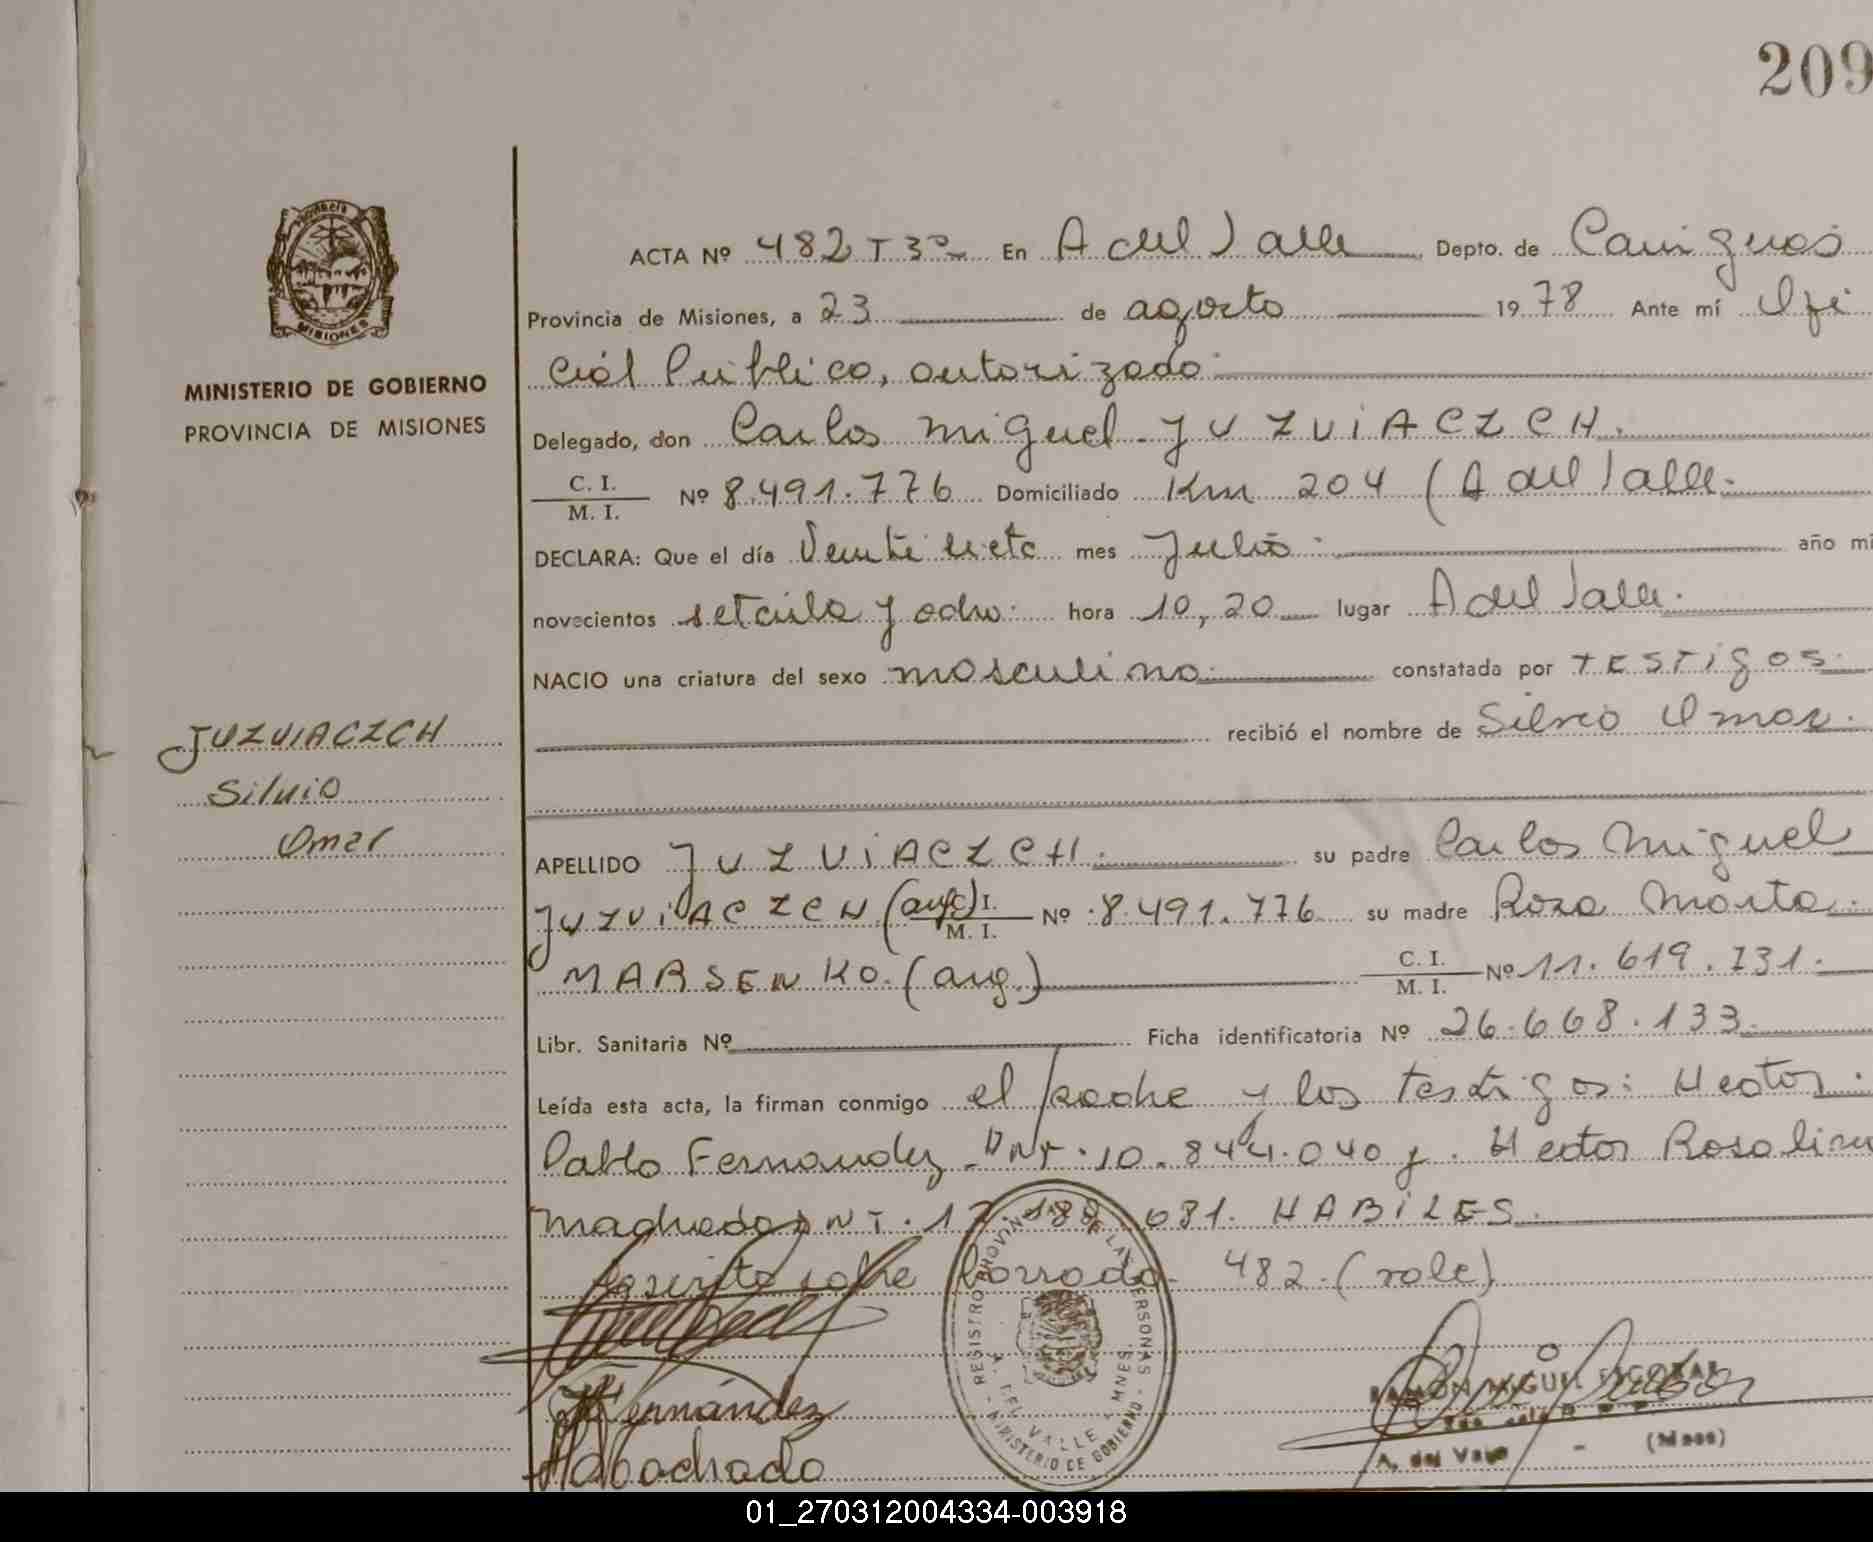 209
ACTA Nº 482 T 3º En A del Valle Depto. de Cainguas
Provincia de Misiones, a 23 de agosto 1978 Ante mí Ofi
cial Publico, autorizado
Delegado, don Carlos Miguel JUZVIACZCH.
C. I.
M. I.
Nº 8.491.776 Domiciliado Km 204 (A del Valle.
DECLARA: Que el día Veintisiete mes Julio año mi
novecientos setenta y ocho hora 10,20 lugar A del Valle.
NACIO una criatura del sexo masculino constatada por TESTigos
recibió el nombre de Silvio Omar.
APELLIDO JUZViACZCH. su padre Carlos Miguel
JUZViACZCH (arg.) C. I. M. I. Nº 8.491.776 su madre Rosa Marta
MARSENKO. (arg.) C. I. M. I. Nº 11.619.731.
Libr. Sanitaria Nº Ficha identificatoria Nº 26.668.133
Leída esta acta, la firman conmigo el padre y los testigos: Hector
Pablo Fernandez DNI. 10.844.040 y. Hector Rosalin
Machado DNI. 081. HABiLES.
sobre borrado 482. (vale)
MISIONES
MINISTERIO DE GOBIERNO
PROVINCIA DE MISIONES
JUZVIACZCH
Silvio
Omar
Fernández
Machado
REGISTRO PROVINCIAL DE LAS PERSONAS
A. DEL VALLE - MNES.
MINISTERIO DE GOBIERNO
RAMON MIGUEL ESCOBAR
A. del Valle - (Mnes)
01_270312004334-003918